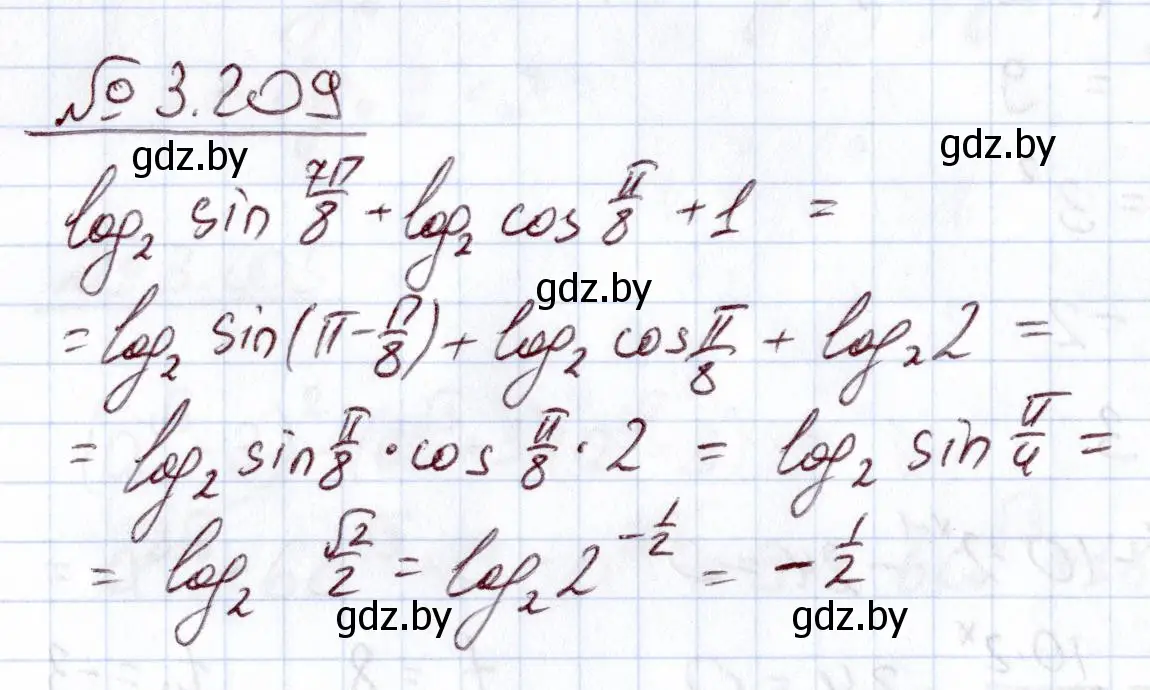 № 3.209
gdz.by
gdz.by
log₂ sin 7π/8 + log₂ cos π/8 + 1 =
gdz.by
= log₂ sin(π - π/8) + log₂ cos π/8 + log₂ 2 =
= log₂ sin π/8 · cos π/8 · 2 = log₂ sin π/4 =
= log₂ √2/2 = log₂ 2^(-1/2) = - 1/2
gdz.by
gdz.by